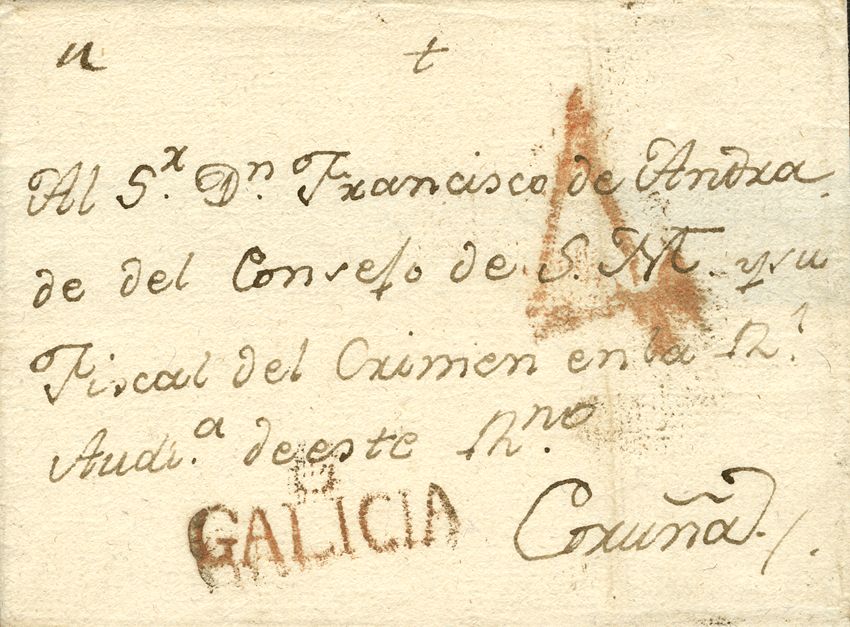 u +
Al S.r Dn. Francisco de Andra
de del Consejo de S. M. y su
Fiscal del Crimen en la Rl.
Audi.a de este Rno.
B
GALICIA
Coruña
4